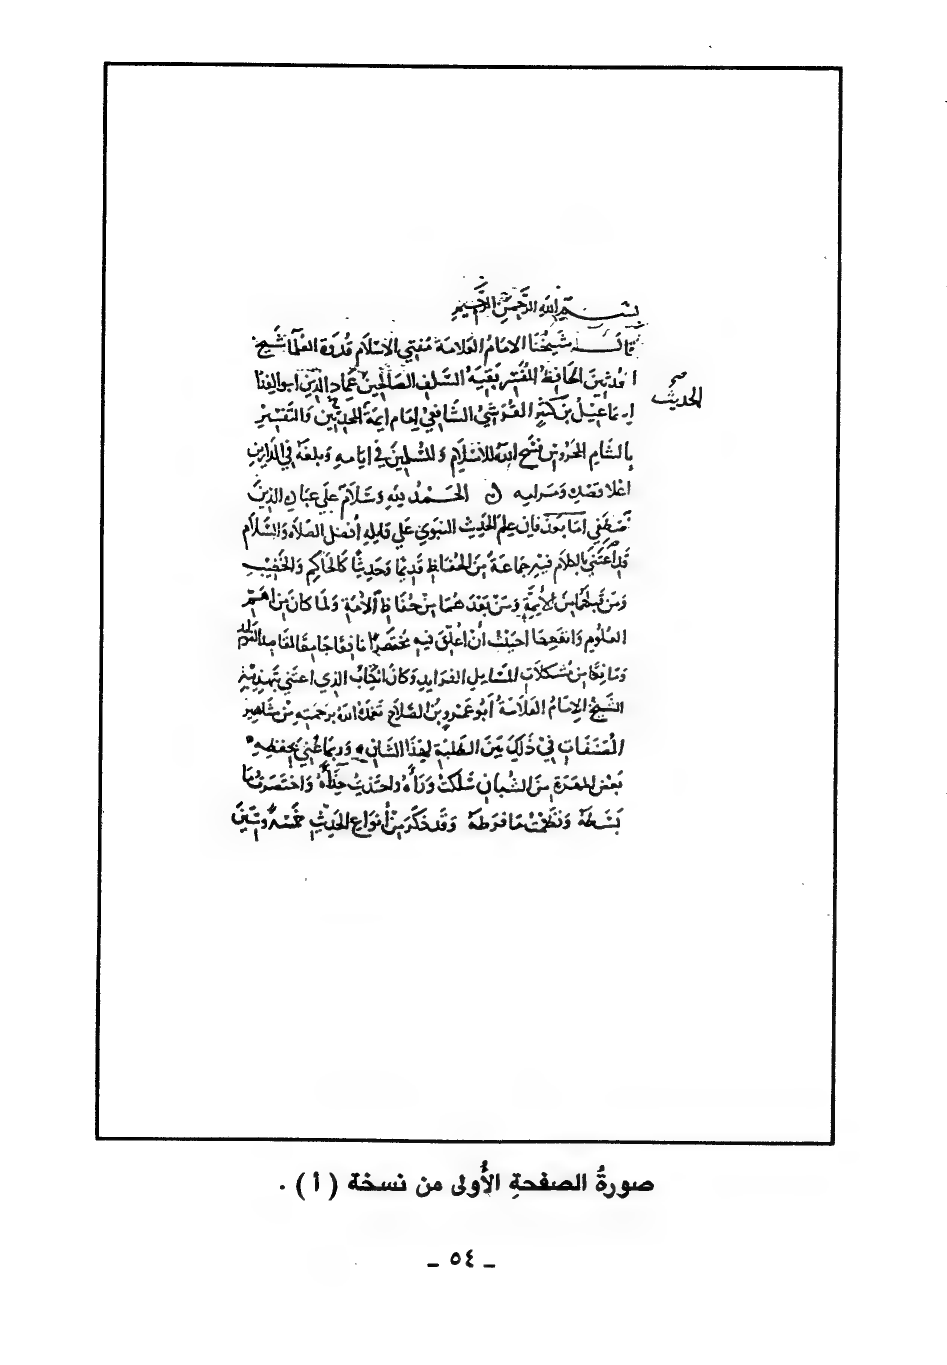 بسم الله الرحمن الرحيم
قال شيخنا الامام العلامة مفتي الاسلام قدوة العلما شيخ
المحدثين الحافظ المفسر بقية السلف الصالحين عماد الدين ابو الفدا
الحديث
اسماعيل بن كثير القرشي الشافعي إمام ايمة المحدثين والتفسير
بالشام المحروس فسح الله للاسلام والمسلمين في ايامه وبلغه في الدارين
اعلا قصده ومرامه الحمد لله وسلام على عباده الذين
اصطفى اما بعد فان علم الحديث النبوي على قايله أفضل الصلاه والسلام
قد اعتنى بالكلام فيه جماعة من الحفاظ قديما وحديثا كالحاكم والخطيب
ومن قبلهما من الأيمة ومن بعدهما من حفاظ الأمة ولما كان من اهم
العلوم وانفعها احببت أن أعلق فيه مختصرا نافعا جامعا لمقاصد الفوايد
ومانعا من مشكلات المسايل الفرايد وكان الكتاب الذي اعتنى بتهذيبه
الشيخ الإمام العلامة أبو عمرو بن الصلاح تغمده الله برحمته من مشاهير
المصنفات في ذلك بين الطلبة لهذا الشان وربما عني بحفظه
بعض المهرة من الشبان سلكت وراه واحتذيت حذاه واختصرت ما
بسطه ونظمت ما فرطه وقد ذكر من أنواع الحديث خمسة وستين
صورةُ الصفحةِ الأُولى من نسخة (أ) .
ـ ٥٤ ـ